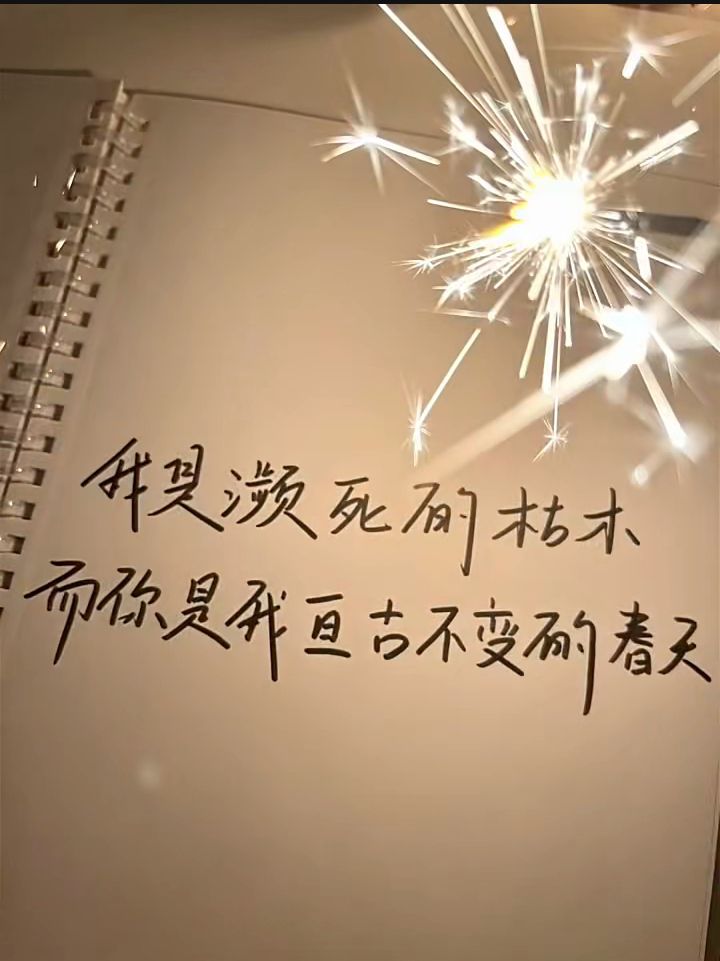 我是濒死的枯木
而你是我亘古不变的春天